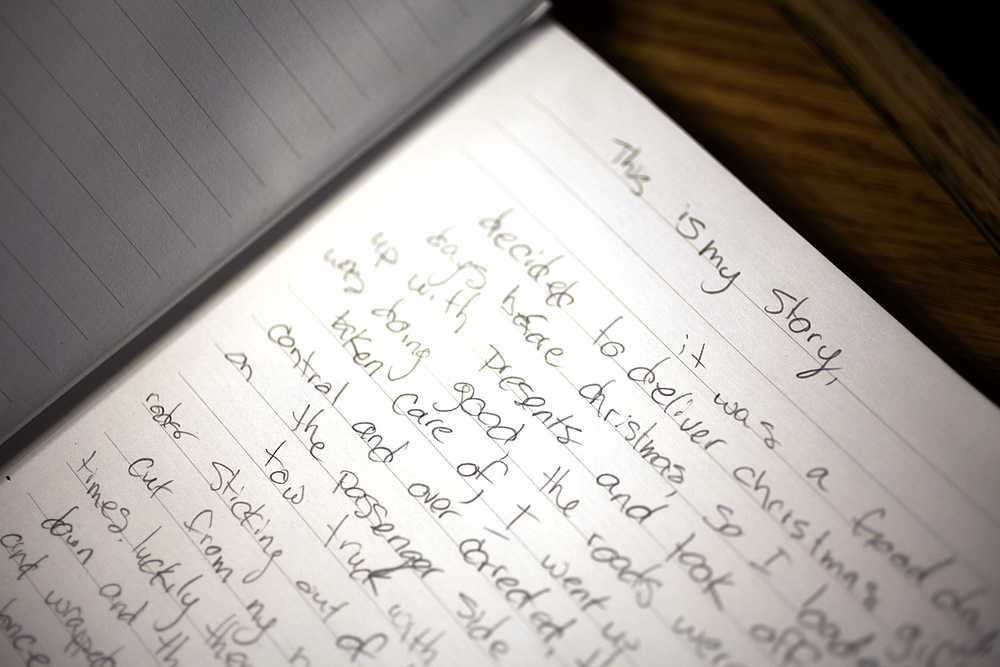 This is my story,
it was a good day
decided to deliver christmas
days before christmas, so I
up with presents and took off
was doing good, the roads were
taken care of, I went
control and over corrected,
an the passenger side
tow truck with
sticking out of
cut from my
times, luckily
down and
and wrapped
once